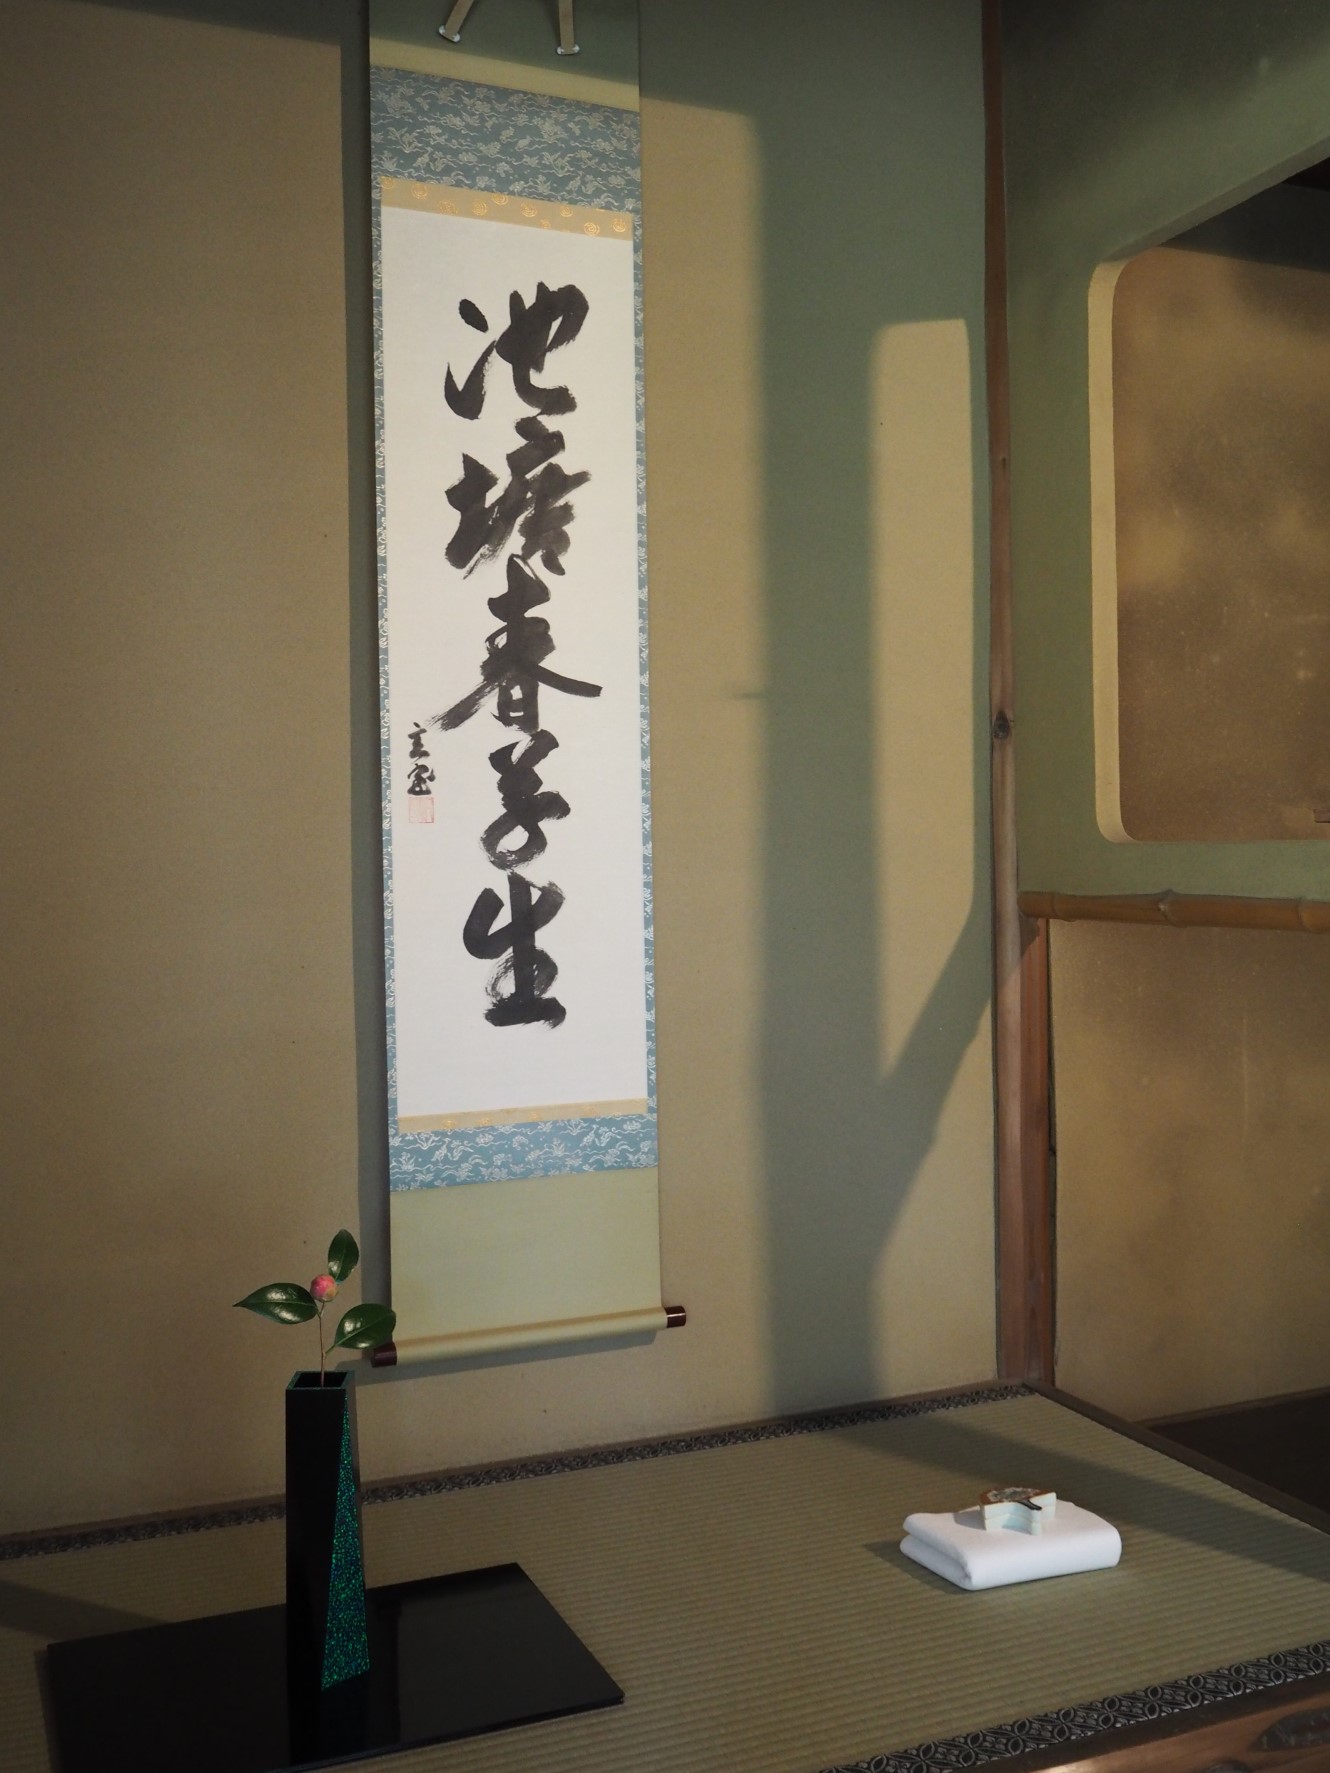 池塘春草生
玄室